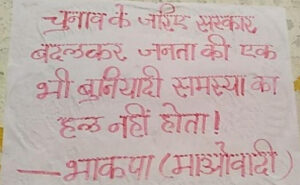 चुनाव के जरिए सरकार
बदलकर जनता की एक
भी बुनियादी समस्या का
हल नहीं होता!
— भाकपा (माओवादी)